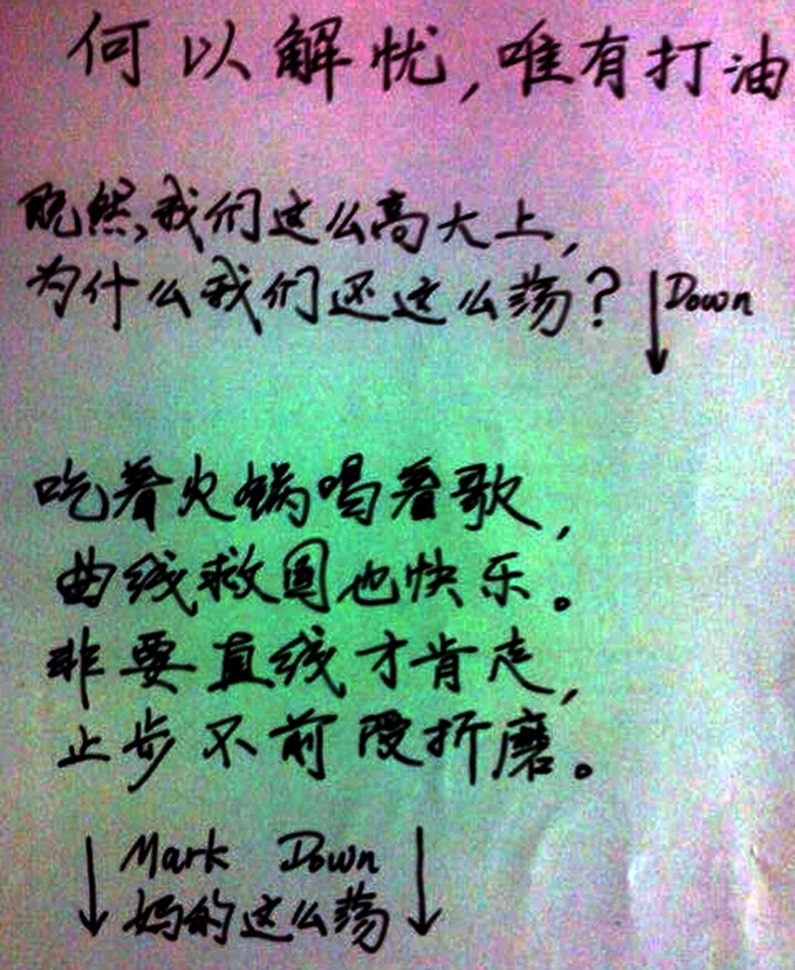 何以解忧,唯有打油
既然,我们这么高大上,
为什么我们还这么荡?↓Down
吃着火锅唱着歌,
曲线救国也快乐。
非要直线才肯走,
止步不前受折磨。
↓ Mark Down ↓
妈的这么荡